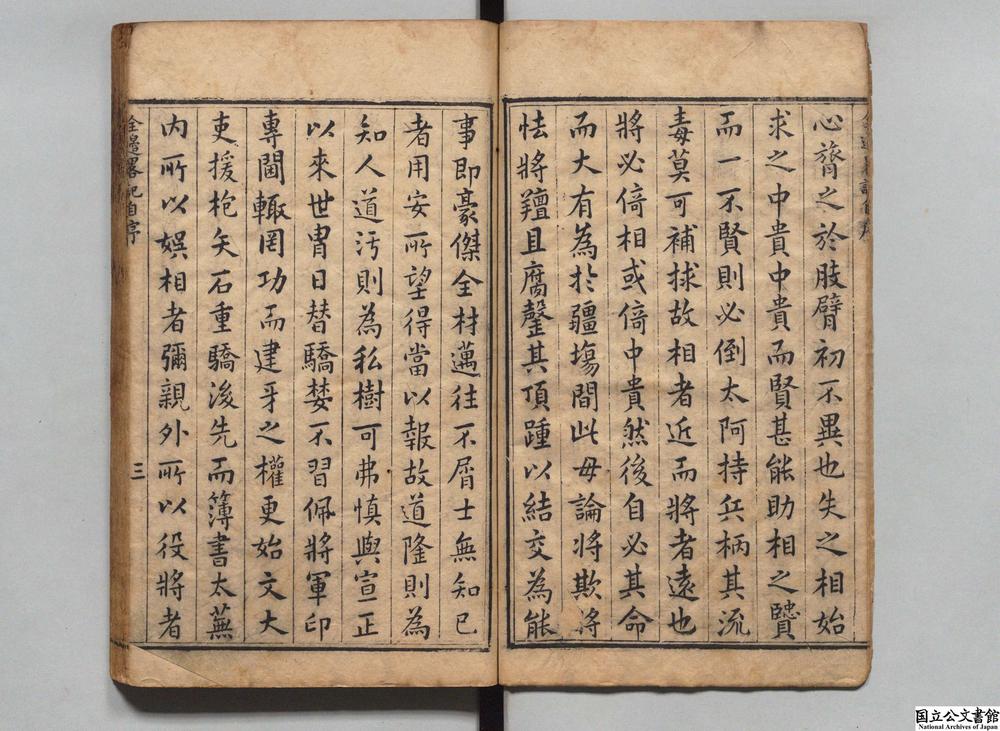 心膂之於肢臂初不異也失之相始
求之中貴中貴而賢甚能助相之賢
而一不賢則必倒太阿持兵柄其流
毒莫可補捄故相者近而將者遠也
將必倚相或倚中貴然後自必其命
而大有為於疆場間此毋論將欺將
怯將羶且腐鏧其頂踵以結交為能
事即豪傑全材邁往不屑士無知己
者用安所望得當以報故道隆則為
知人道污則為私樹可弗慎與宣正
以來世冑日替驕婪不習佩將軍印
專閫輙罔功而建牙之權更始文大
吏援枹矢石重驕浚先而簿書太蕪
內所以娯相者彌親外所以役將者
全邉畧記自序
三
国立公文書館
National Archives of Japan